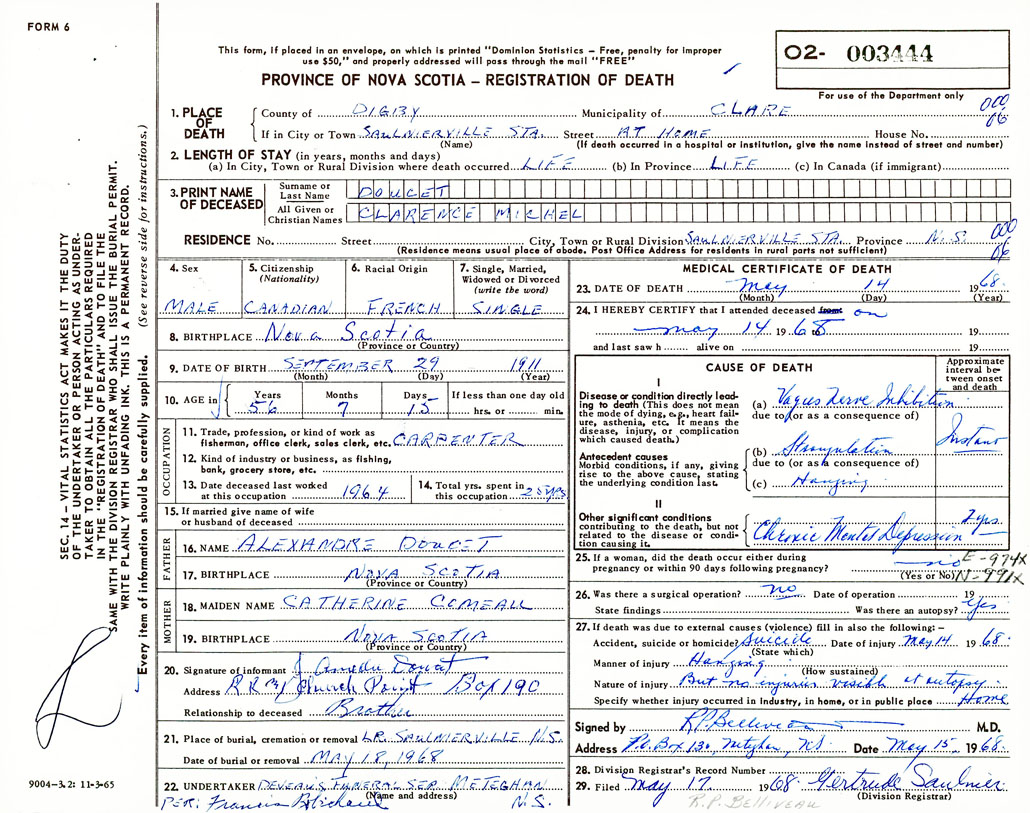 FORM 6
This form, if placed in an envelope, on which is printed "Dominion Statistics – Free, penalty for improper
use $50," and properly addressed will pass through the mail "FREE"
PROVINCE OF NOVA SCOTIA – REGISTRATION OF DEATH
02- 003444
For use of the Department only
000
06
1. PLACE OF DEATH
County of DIGBY Municipality of CLARE
If in City or Town SAULNIERVILLE STA. Street AT HOME House No.
(Name) (If death occurred in a hospital or institution, give the name instead of street and number)
2. LENGTH OF STAY (in years, months and days)
(a) In City, Town or Rural Division where death occurred LIFE (b) In Province LIFE (c) In Canada (if immigrant)
3. PRINT NAME OF DECEASED
Surname or Last Name DOUCET
All Given or Christian Names CLARENCE MICHEL
RESIDENCE No. Street City, Town or Rural Division SAULNIERVILLE STA. Province N.S.
(Residence means usual place of abode. Post Office Address for residents in rural parts not sufficient)
000
06
4. Sex
MALE
5. Citizenship
(Nationality)
CANADIAN
6. Racial Origin
FRENCH
7. Single, Married,
Widowed or Divorced
(write the word)
SINGLE
8. BIRTHPLACE Nova Scotia
(Province or Country)
9. DATE OF BIRTH SEPTEMBER 29 1911
(Month) (Day) (Year)
10. AGE in
Years Months Days If less than one day old
56 7 15 hrs. or min.
OCCUPATION
11. Trade, profession, or kind of work as
fisherman, office clerk, sales clerk, etc. CARPENTER
12. Kind of industry or business, as fishing,
bank, grocery store, etc.
13. Date deceased last worked
at this occupation 1964
14. Total yrs. spent in
this occupation 25 yrs
15. If married give name of wife
or husband of deceased
FATHER
16. NAME ALEXANDRE DOUCET
17. BIRTHPLACE NOVA SCOTIA
(Province or Country)
MOTHER
18. MAIDEN NAME CATHERINE COMEAU
19. BIRTHPLACE NOVA SCOTIA
(Province or Country)
20. Signature of informant Doucet
Address R R #1 Church Point Box 190
Relationship to deceased Brother
21. Place of burial, cremation or removal LR. SAULNIERVILLE N.S.
Date of burial or removal MAY 18, 1968
22. UNDERTAKER DEVEAU'S FUNERAL SER. METEGHAN
(Name and address) N.S.
PER: Francis
MEDICAL CERTIFICATE OF DEATH
23. DATE OF DEATH May 14 1968
(Month) (Day) (Year)
24. I HEREBY CERTIFY that I attended deceased from on
May 14 1968 to 19
and last saw h alive on 19
CAUSE OF DEATH
Approximate
interval be-
tween onset
and death
I
Disease or condition directly lead-
ing to death (This does not mean
the mode of dying, e.g., heart fail-
ure, asthenia, etc. It means the
disease, injury, or complication
which caused death.)
(a) Vagus Nerve Inhibition
due to (or as a consequence of)
Instant
Antecedent causes
Morbid conditions, if any, giving
rise to the above cause, stating
the underlying condition last.
(b) Strangulation
due to (or as a consequence of)
(c) Hanging
II
Other significant conditions
contributing to the death, but not
related to the disease or condi-
tion causing it.
Chronic Mental Depression 2 yrs.
25. If a woman, did the death occur either during
pregnancy or within 90 days following pregnancy? no
(Yes or No)
E-974X
N-991X
26. Was there a surgical operation? no Date of operation 19
State findings Was there an autopsy? Yes
27. If death was due to external causes (violence) fill in also the following:–
Accident, suicide or homicide? Suicide Date of injury May 14 1968
(State which)
Manner of injury Hanging
(How sustained)
Nature of injury But no injuries visible at autopsy.
Specify whether injury occurred in industry, in home, or in public place Home
Signed by R.P. Belliveau M.D.
Address P.O. Box 130, Meteghan, N.S. Date May 15 1968
28. Division Registrar's Record Number
29. Filed May 17 1968 Gertrude Saulnier
(Division Registrar)
R.P. BELLIVEAU
SEC. 14 – VITAL STATISTICS ACT MAKES IT THE DUTY
OF THE UNDERTAKER OR PERSON ACTING AS UNDER-
TAKER TO OBTAIN ALL THE PARTICULARS REQUIRED
IN THE "REGISTRATION OF DEATH" AND TO FILE THE
SAME WITH THE DIVISION REGISTRAR WHO SHALL ISSUE THE BURIAL PERMIT.
WRITE PLAINLY WITH UNFADING INK. THIS IS A PERMANENT RECORD.
Every item of information should be carefully supplied. (See reverse side for instructions.)
9004–3.2: 11-3-65